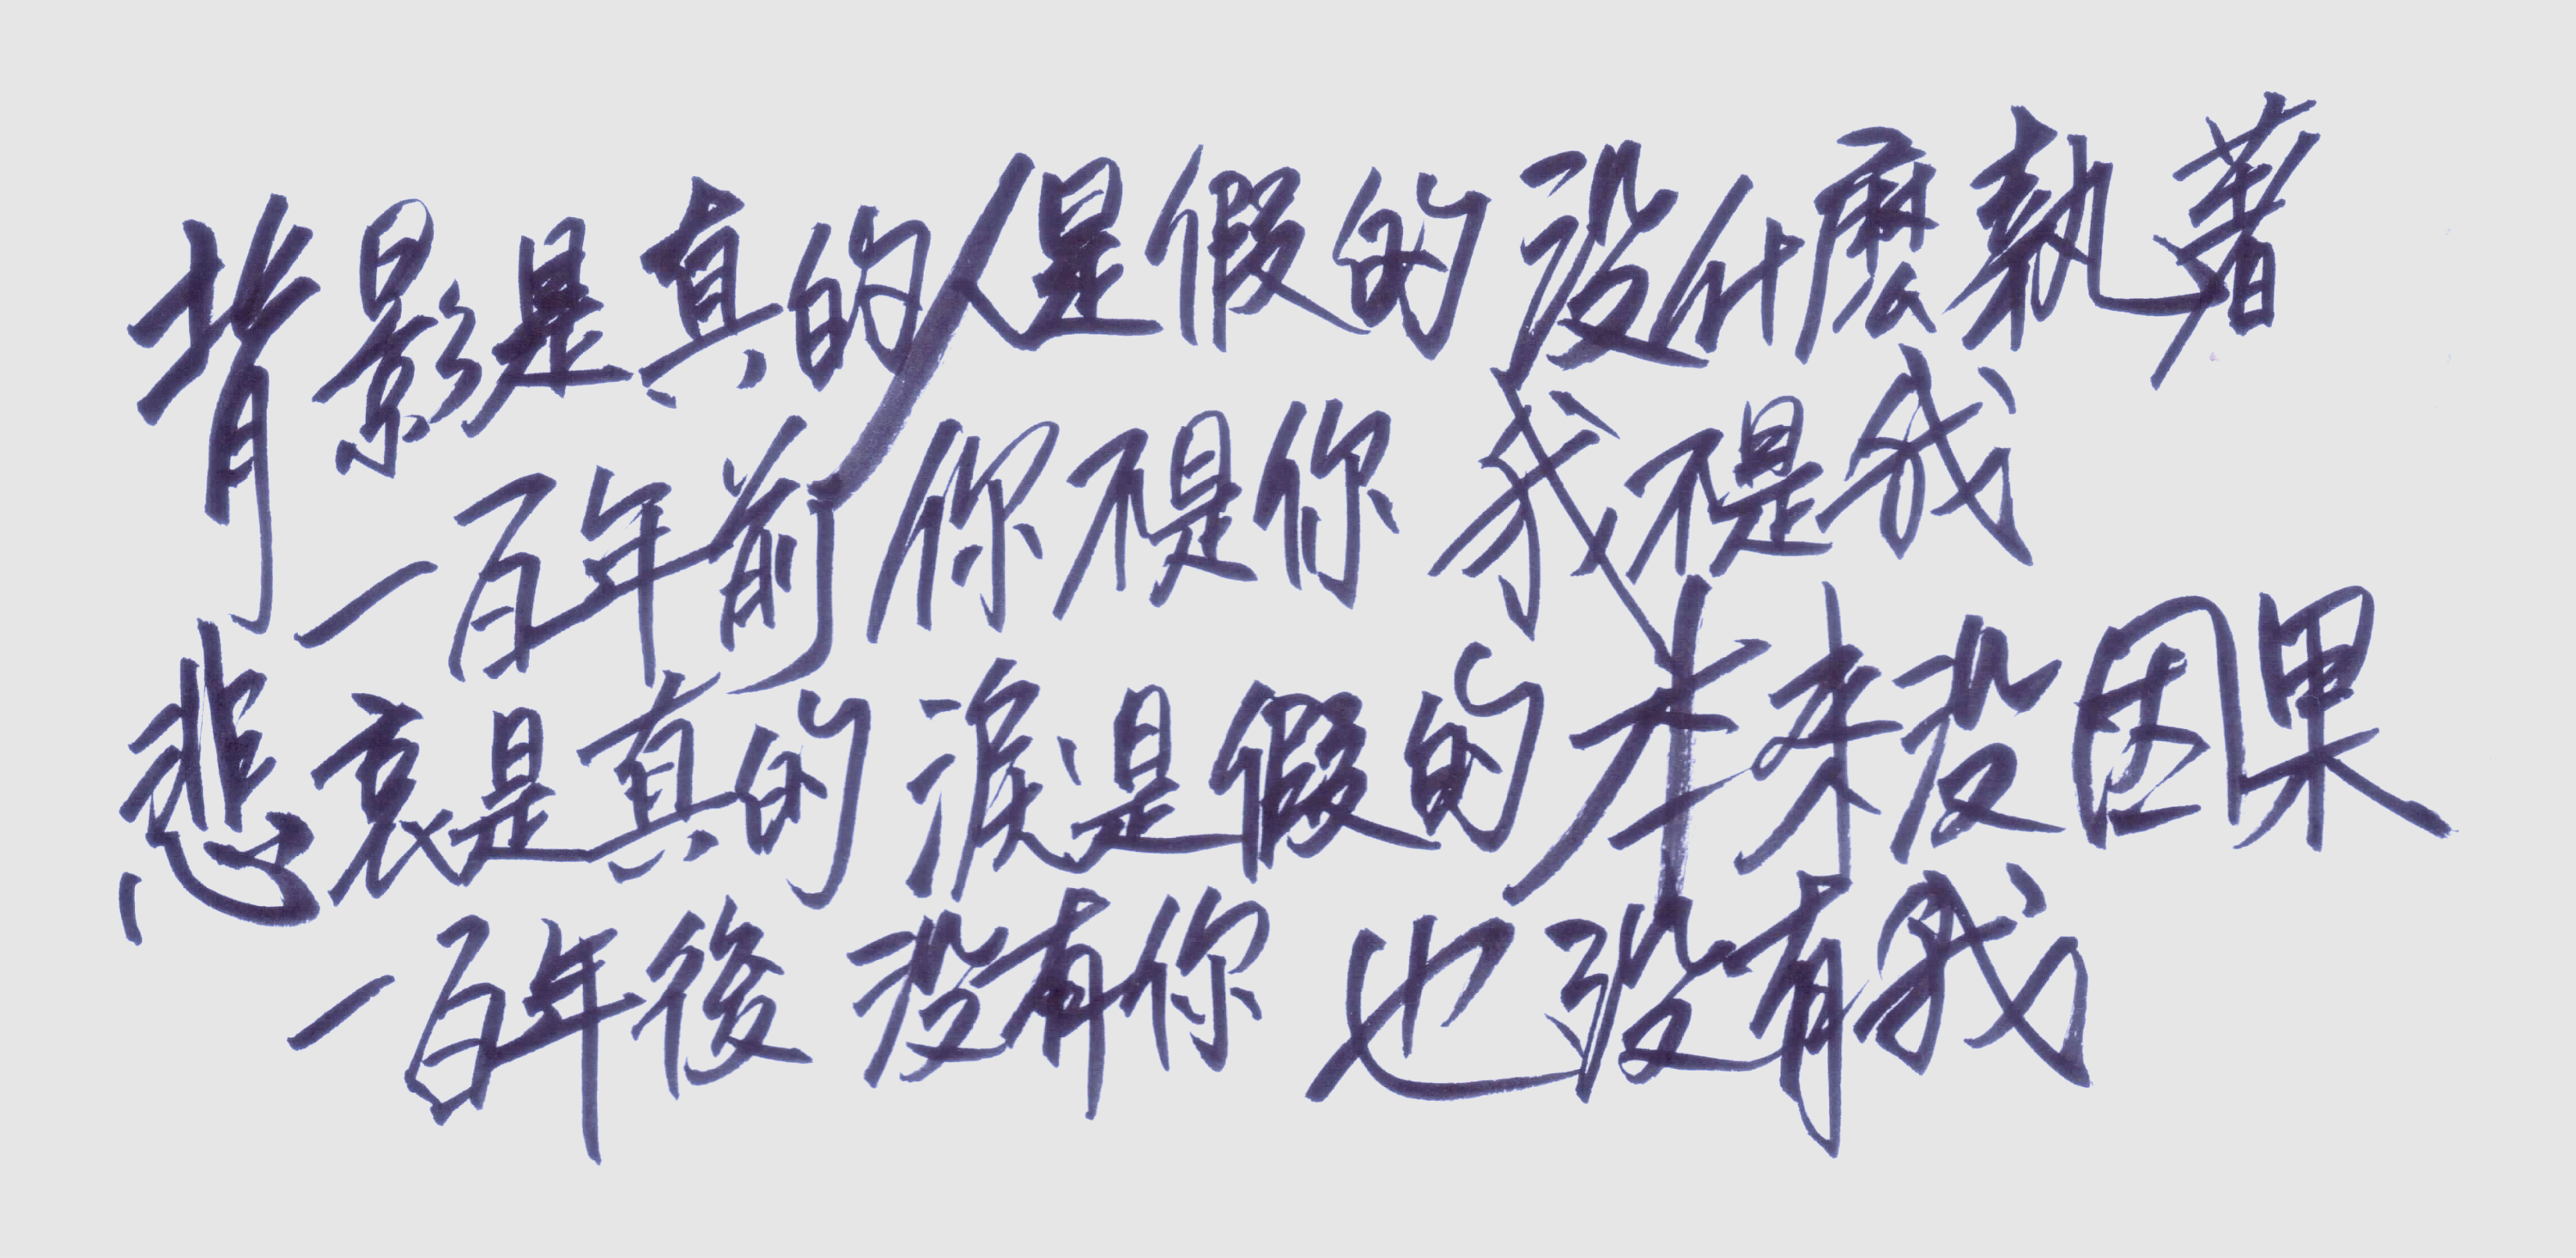 背影是真的人是假的 沒什麼執著
一百年前 你不是你 我不是我
悲哀是真的 淚是假的 本來沒因果
一百年後 沒有你 也沒有我